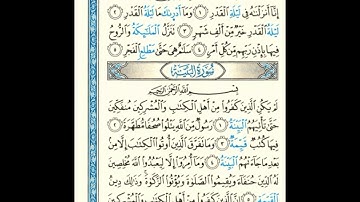 إِنَّا أَنزَلْنَٰهُ فِى لَيْلَةِ ٱلْقَدْرِ ١ وَمَآ أَدْرَىٰكَ مَا لَيْلَةُ ٱلْقَدْرِ
٢ لَيْلَةُ ٱلْقَدْرِ خَيْرٌ مِّنْ أَلْفِ شَهْرٍ ٣ تَنَزَّلُ ٱلْمَلَٰٓئِكَةُ وَٱلرُّوحُ
فِيهَا بِإِذْنِ رَبِّهِم مِّن كُلِّ أَمْرٍ ٤ سَلَٰمٌ هِىَ حَتَّىٰ مَطْلَعِ ٱلْفَجْرِ ٥
سُورَةُ ٱلْبَيِّنَةِ
بِسْمِ ٱللَّهِ ٱلرَّحْمَٰنِ ٱلرَّحِيمِ
لَمْ يَكُنِ ٱلَّذِينَ كَفَرُوا۟ مِنْ أَهْلِ ٱلْكِتَٰبِ وَٱلْمُشْرِكِينَ مُنفَكِّينَ
حَتَّىٰ تَأْتِيَهُمُ ٱلْبَيِّنَةُ ١ رَسُولٌ مِّنَ ٱللَّهِ يَتْلُوا۟ صُحُفًا مُّطَهَّرَةً ٢
فِيهَا كُتُبٌ قَيِّمَةٌ ٣ وَمَا تَفَرَّقَ ٱلَّذِينَ أُوتُوا۟ ٱلْكِتَٰبَ إِلَّا مِنۢ
بَعْدِ مَا جَآءَتْهُمُ ٱلْبَيِّنَةُ ٤ وَمَآ أُمِرُوٓا۟ إِلَّا لِيَعْبُدُوا۟ ٱللَّهَ مُخْلِصِينَ
لَهُ ٱلدِّينَ حُنَفَآءَ وَيُقِيمُوا۟ ٱلصَّلَوٰةَ وَيُؤْتُوا۟ ٱلزَّكَوٰةَ وَذَٰلِكَ دِينُ
ٱلْقَيِّمَةِ ٥ إِنَّ ٱلَّذِينَ كَفَرُوا۟ مِنْ أَهْلِ ٱلْكِتَٰبِ وَٱلْمُشْرِكِينَ